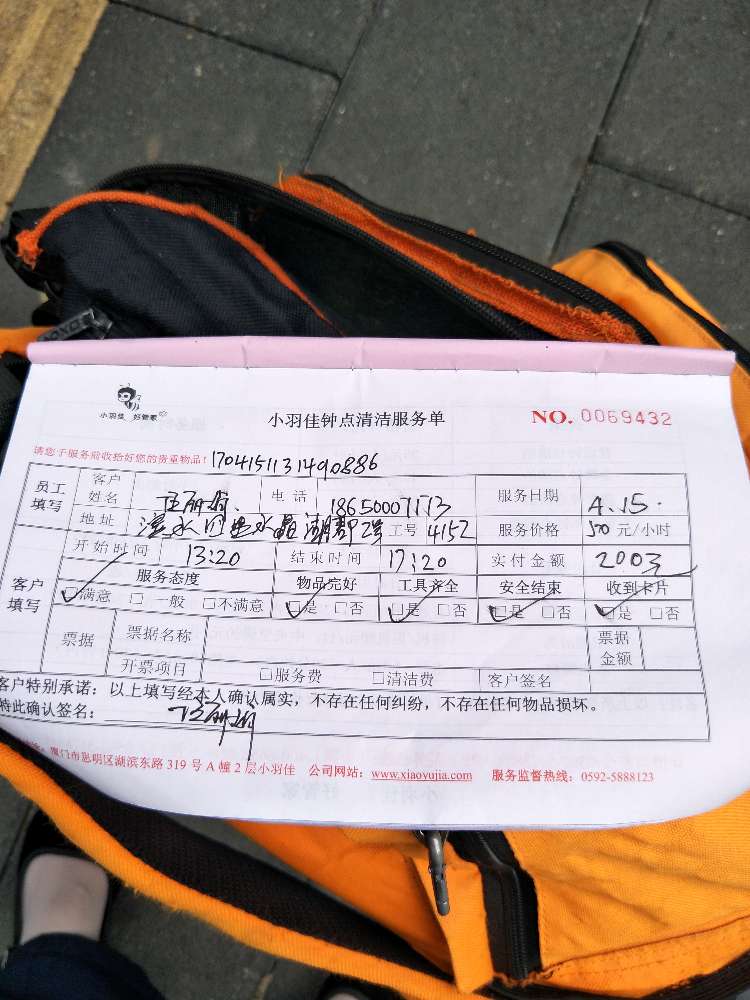 小羽佳 好管家
小羽佳钟点清洁服务单
NO. 0069432
请您于服务前收拾好您的贵重物品!
1704151131490886
员工填写 客户姓名 电话 18650007173 服务日期 4.15.
地址 工号 4152 服务价格 元/小时
客户填写 开始时间 13:20 结束时间 17:20 实付金额
服务态度 物品完好 工具齐全 安全结束 收到卡片
□满意 □一般 □不满意 □是 □否 □是 □否 □是 □否 □是 □否
票据 票据名称 票据金额
开票项目 □服务费 □清洁费 客户签名
客户特别承诺:以上填写经本人确认属实,不存在任何纠纷,不存在任何物品损坏。
特此确认签名:
厦门市思明区湖滨东路 319 号 A 幢 2 层小羽佳 公司网站:www.xiaoyujia.com 服务监督热线:0592-5888123